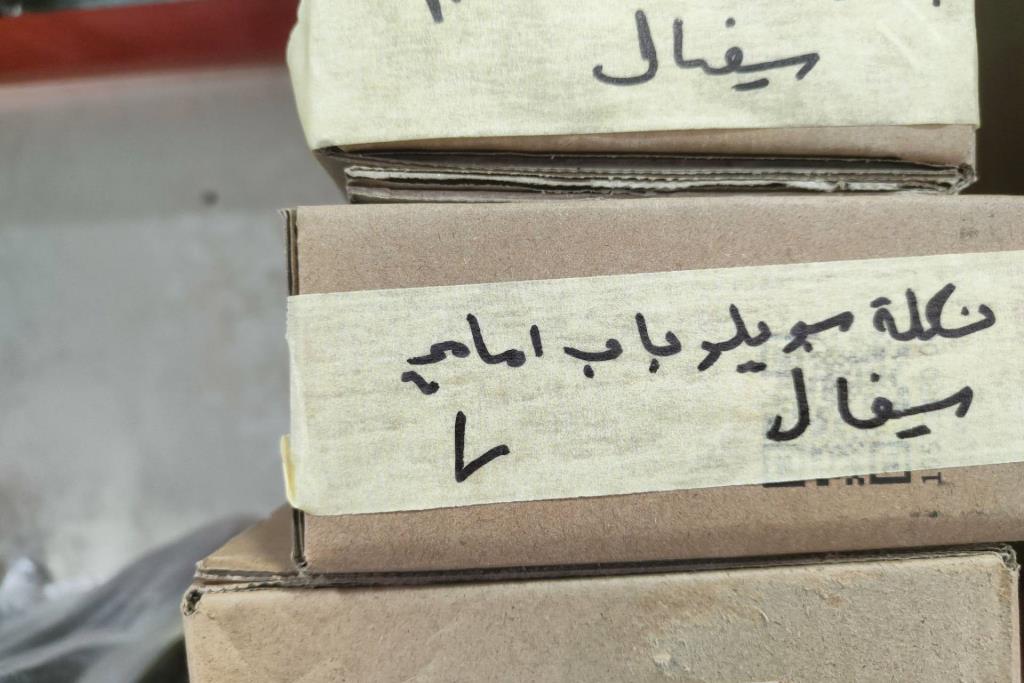 سيفال
نكلة سبويلر باب امامي
سيفال
٧